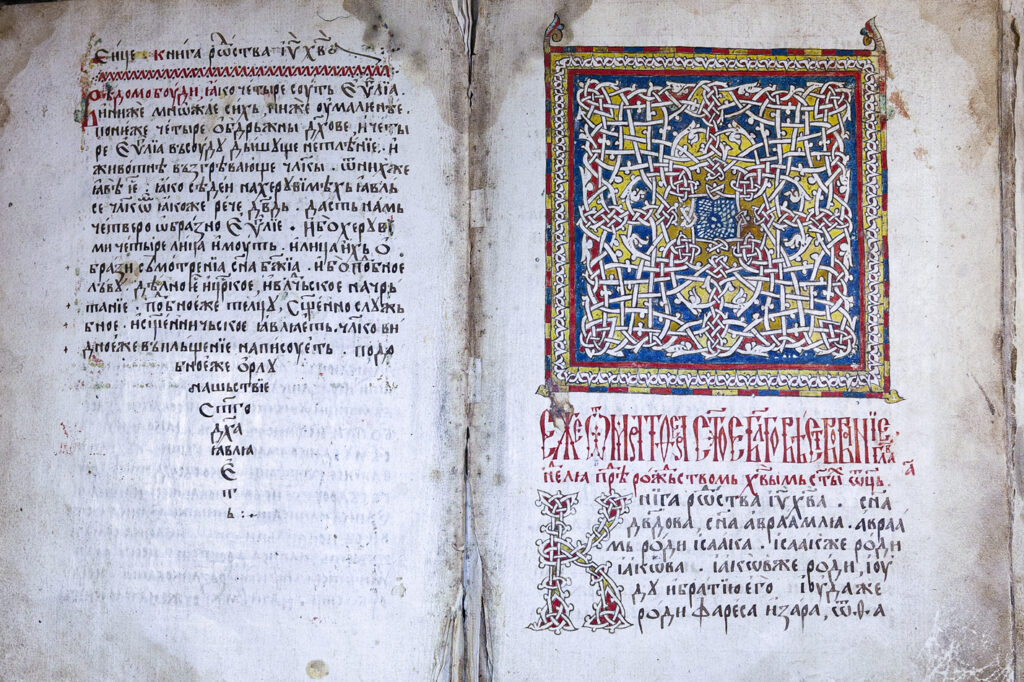 Сице книга рѡ҃ства і҃у х҃во
Вѣдомо боуди, ꙗко четыре соуть є҃ѵлїа.
и ниже мнѡжае сихъ, ниже оумалиѥнѣе
понѥже четыре ѡбдръжны д҃хове, и четы
ре є҃ѵлїа въсоудꙋ дышꙋще нетлѣнїе. и
животнѣ възгрѣвающе чл҃кы. ѿ нихже
ꙗвѣ є҃. ꙗко сѣдеи на херꙋвімѣхъ ꙗвль
се чл҃кѡ҃ ꙗкоже рече д҃вдъ. дасть намь
четверо ѡбразно є҃ѵлїе. ибо херꙋви
ми четыре лица имоуть. и лица ихь ѡ
брази съмотренїа с҃на б҃жїа. и бо подобное
льву. дѣлное и ц҃рское, и вл҃чьское начрь
танїе. подобноеже телцꙋ, с҃щенно слꙋжь
бное. и с҃щенничьское ꙗвлꙗеть. чл҃ко ви
дноеже въплъщенїе написꙋеть. подо
бноеже ѡрлꙋ
нашьствїе
с҃тго
д҃ха
ꙗвлꙗ
є
т
ь
Еже ѿ Матѳеа с҃тое бл҃говѣствованїе
нє҃лꙗ прѣ рож҃ьствомь х҃вымь с҃ты ѿц҃ь.
Книга рѡ҃ства і҃у х҃ва. с҃на
д҃вдова, с҃на авраамлꙗ. авраа
мь роди ісаака. ісаакже роди
іакѡва. іакѡвже роди, іоу
дꙋ и братїю его. іюдаже
роди фареса и зара, ѿ ѳа